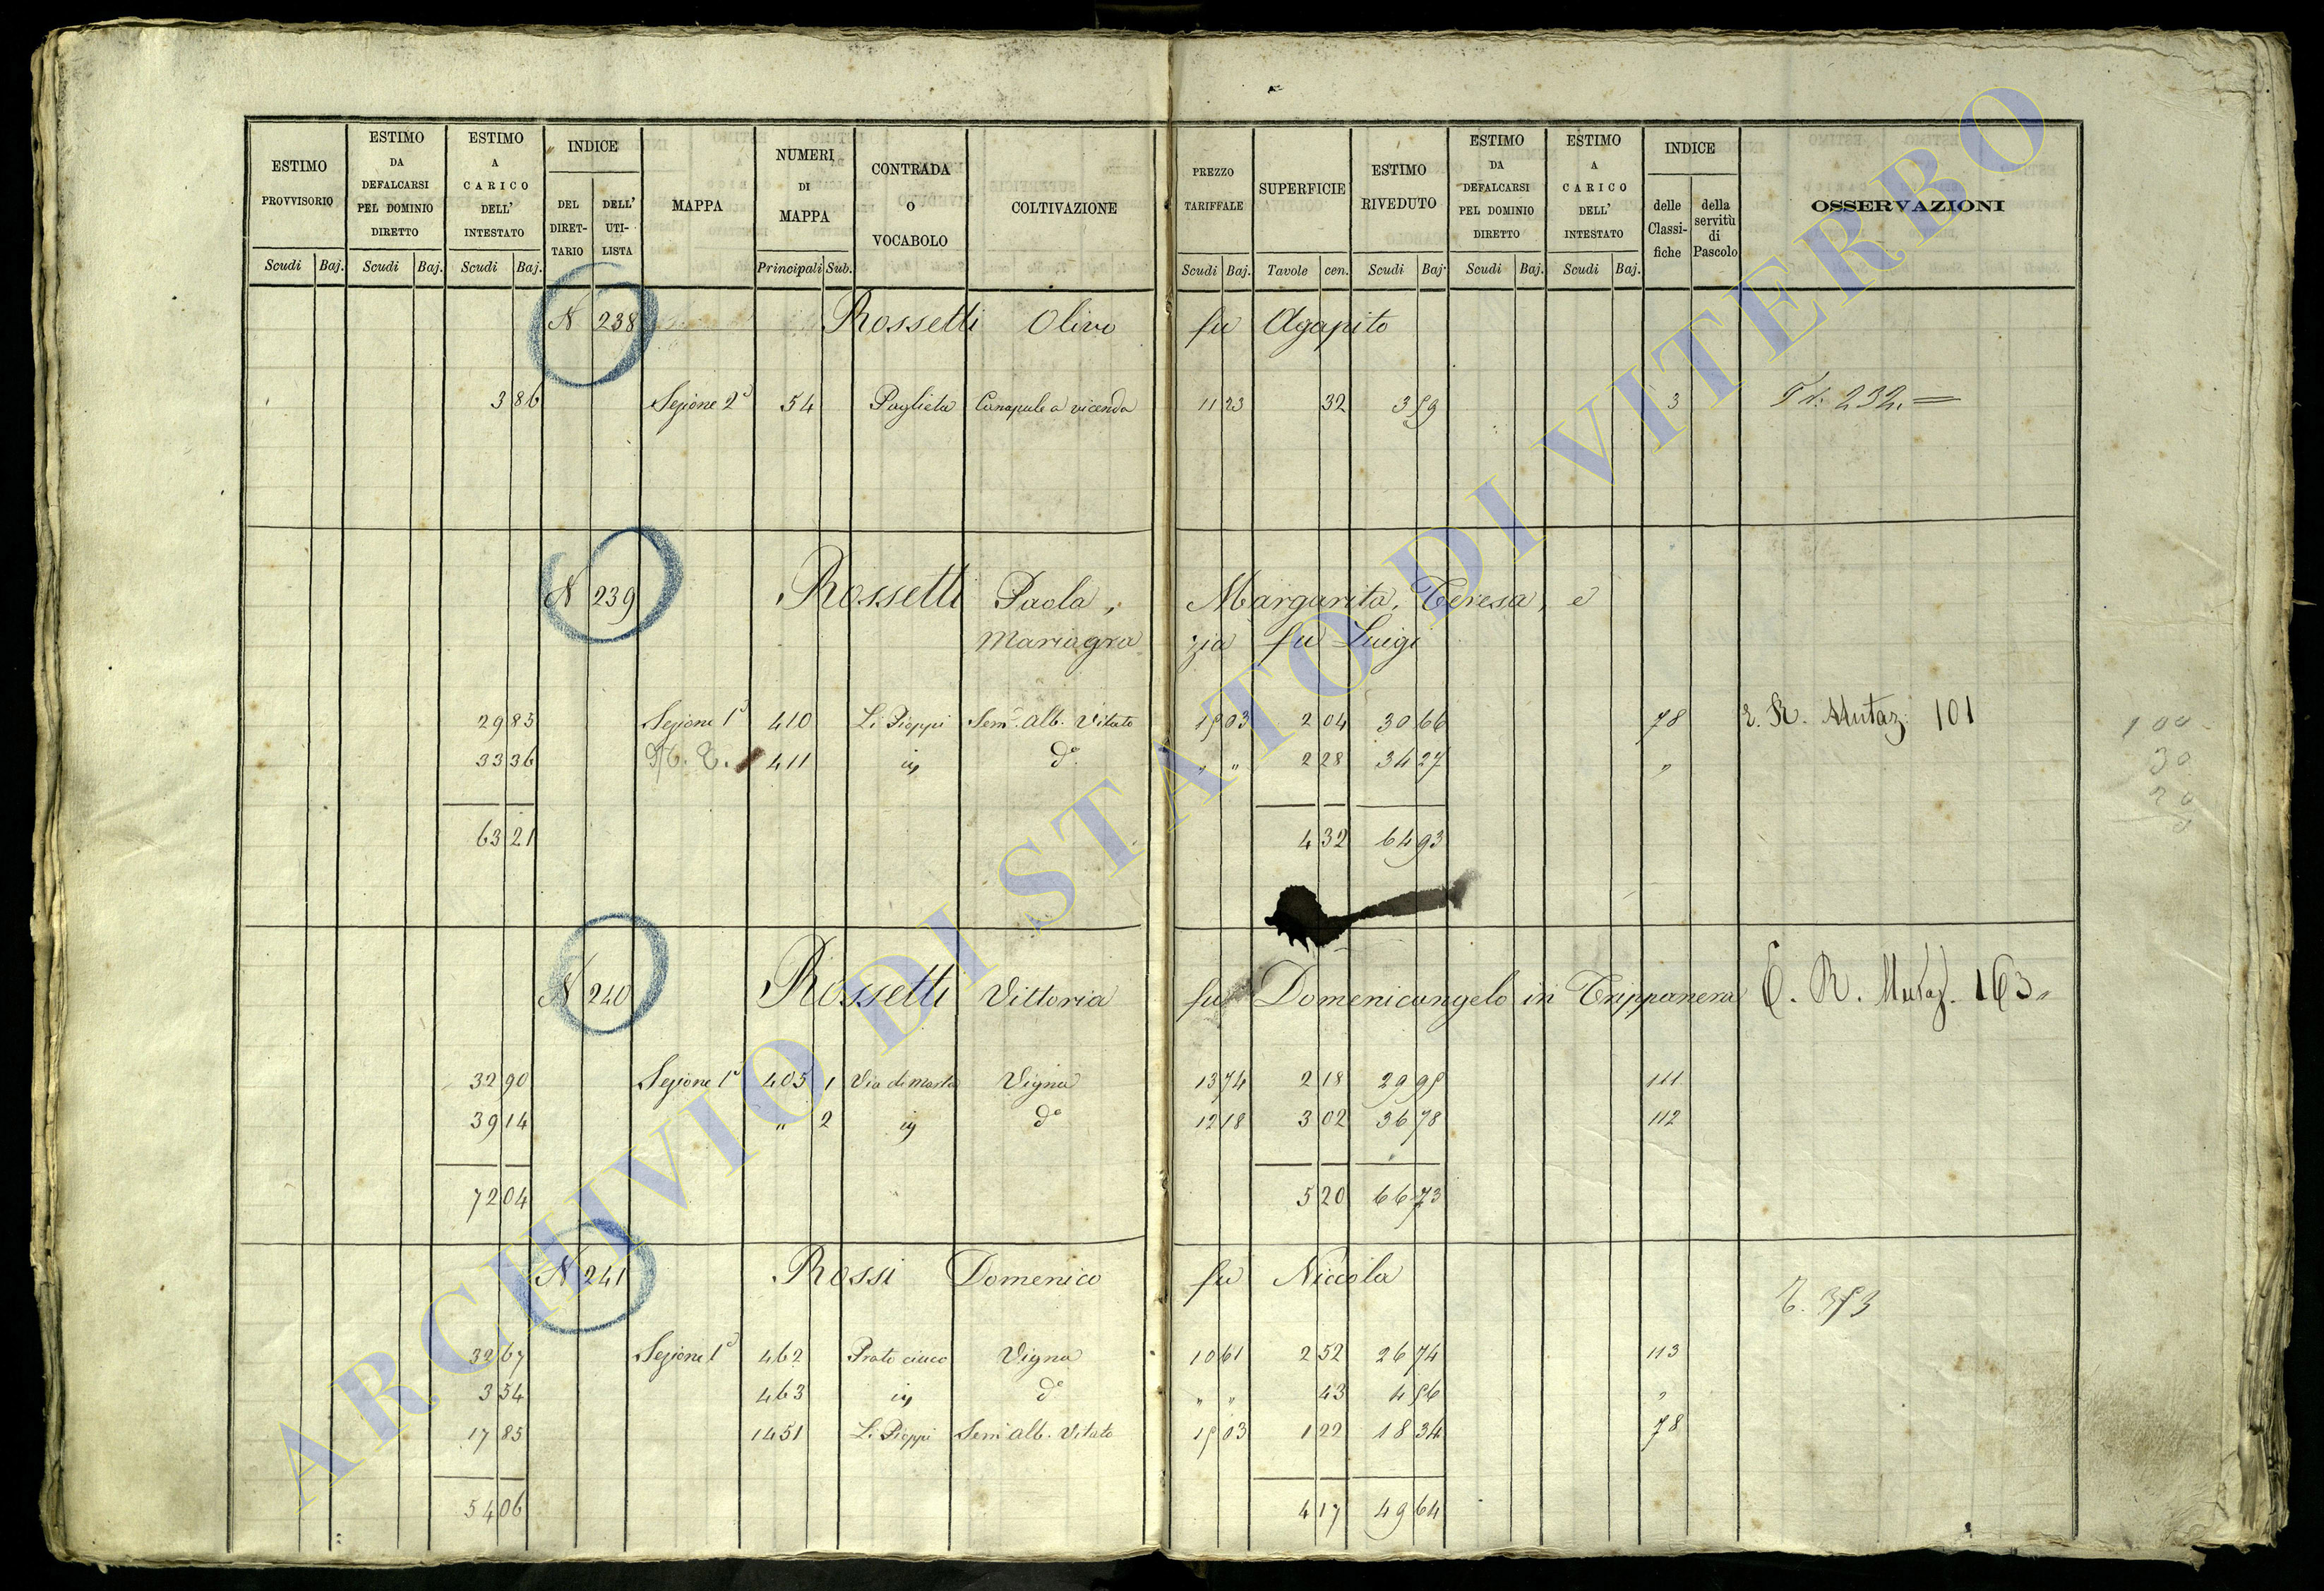 ESTIMO PROVVISORIO Scudi Baj.
ESTIMO DA DEFALCARSI PEL DOMINIO DIRETTO Scudi Baj.
ESTIMO A CARICO DELL' INTESTATO Scudi Baj.
INDICE DEL DIRET-TARIO DELL' UTI-LISTA
MAPPA
NUMERI DI MAPPA Principali Sub.
CONTRADA O VOCABOLO
COLTIVAZIONE
PREZZO TARIFFALE Scudi Baj.
SUPERFICIE Tavole cen.
ESTIMO RIVEDUTO Scudi Baj
ESTIMO DA DEFALCARSI PEL DOMINIO DIRETTO Scudi Baj.
ESTIMO A CARICO DELL' INTESTATO Scudi Baj.
INDICE delle Classi-fiche della servitù di Pascolo
OSSERVAZIONI
N 238 Rossetti Olivo fu Agapito
3 86 Sezione 2ª 54 Paglieta Canapule a vicenda 11 23 32 3 59 3 232.
N 239 Rossetti Paola, Margarita, Teresa, e
Mariagra zia fu Luigi
29 85 Sezione 1ª 410 Li Pioppi Semº. Alb. Vitato 15 03 2 04 30 66 78 R. Mutaz. 101
33 36 411 iv dº " " 2 28 34 27 "
63 21 4 32 64 93
100
30
N 240 Rossetti Vittoria fu Domenicangelo in Trippanera R. Mutaz. 163
32 90 Sezione 1ª 405 1 Via di Marta Vigna 13 74 2 18 29 95 111
39 14 " 2 iv dº 12 18 3 02 36 78 112
72 04 5 20 66 73
N 241 Rossi Domenico fu Niccola
T. 353
32 67 Sezione 1ª 462 Prato cieco Vigna 10 61 2 52 26 74 113
3 54 463 iv dº " " 43 4 56 "
17 85 1451 Li Pioppi Semº Alb. Vitato 15 03 1 22 18 34 78
54 06 4 17 49 64
ARCHIVIO DI STATO DI VITERBO